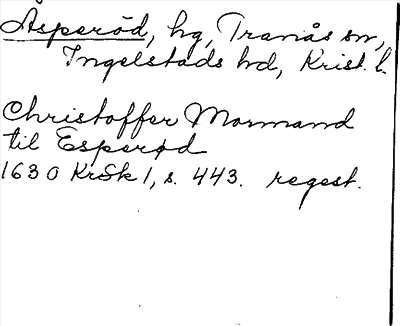 Äsperöd, hg, Tranås sn,
Ingelstads hd, Krist. l.
Christoffer Mormand
til Esperød
1630 KrSk 1, s. 443. regest.